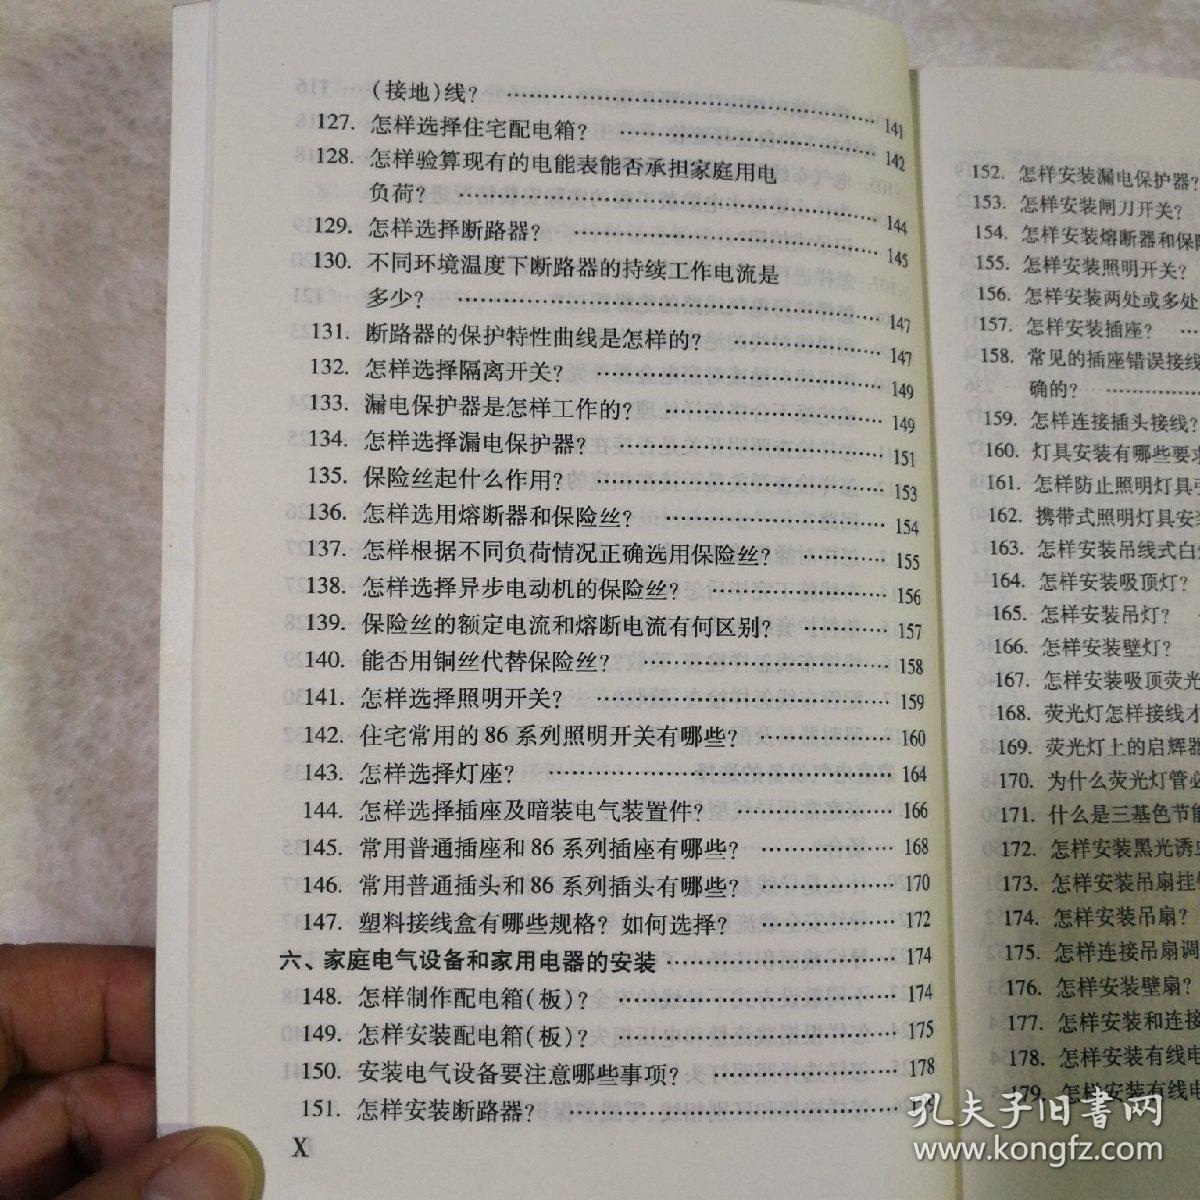 (接地)线? …… 141
127. 怎样选择住宅配电箱? …… 142
128. 怎样验算现有的电能表能否承担家庭用电
负荷? …… 144
129. 怎样选择断路器? …… 145
130. 不同环境温度下断路器的持续工作电流是
多少? …… 147
131. 断路器的保护特性曲线是怎样的? …… 147
132. 怎样选择隔离开关? …… 149
133. 漏电保护器是怎样工作的? …… 149
134. 怎样选择漏电保护器? …… 151
135. 保险丝起什么作用? …… 153
136. 怎样选用熔断器和保险丝? …… 154
137. 怎样根据不同负荷情况正确选用保险丝? …… 155
138. 怎样选择异步电动机的保险丝? …… 156
139. 保险丝的额定电流和熔断电流有何区别? …… 157
140. 能否用铜丝代替保险丝? …… 158
141. 怎样选择照明开关? …… 159
142. 住宅常用的 86 系列照明开关有哪些? …… 160
143. 怎样选择灯座? …… 164
144. 怎样选择插座及暗装电气装置件? …… 166
145. 常用普通插座和 86 系列插座有哪些? …… 168
146. 常用普通插头和 86 系列插头有哪些? …… 170
147. 塑料接线盒有哪些规格? 如何选择? …… 172
六、家庭电气设备和家用电器的安装 …… 174
148. 怎样制作配电箱(板)? …… 174
149. 怎样安装配电箱(板)? …… 175
150. 安装电气设备要注意哪些事项? …… 178
151. 怎样安装断路器? ……
X
152. 怎样安装漏电保护器?
153. 怎样安装闸刀开关?
154. 怎样安装熔断器和保险
155. 怎样安装照明开关?
156. 怎样安装两处或多处
157. 怎样安装插座? …
158. 常见的插座错误接线
确的? ……
159. 怎样连接插头接线?
160. 灯具安装有哪些要求
161. 怎样防止照明灯具
162. 携带式照明灯具安装
163. 怎样安装吊线式白
164. 怎样安装吸顶灯?
165. 怎样安装吊灯?
166. 怎样安装壁灯?
167. 怎样安装吸顶荧光
168. 荧光灯怎样接线才
169. 荧光灯上的启辉器
170. 为什么荧光灯管必
171. 什么是三基色节能
172. 怎样安装黑光诱虫
173. 怎样安装吊扇挂
174. 怎样安装吊扇?
175. 怎样连接吊扇调
176. 怎样安装壁扇?
177. 怎样安装和连接
178. 怎样安装有线电
179. 怎样安装有线电
孔夫子旧书网
www.kongfz.com